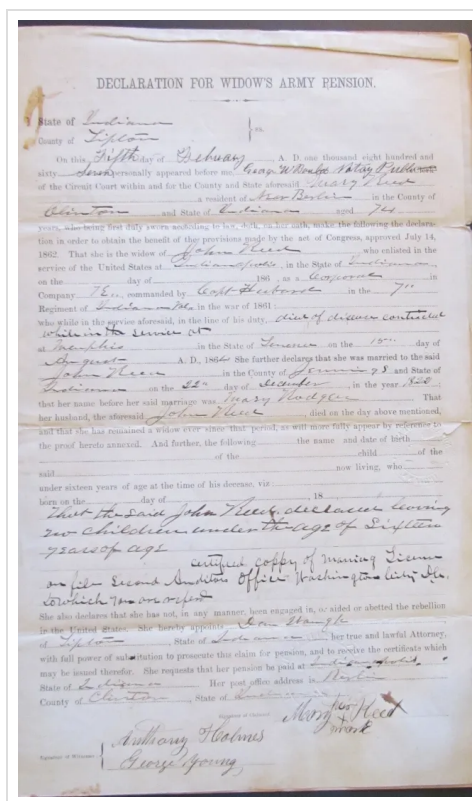 DECLARATION FOR WIDOW'S ARMY PENSION.
State of Indiana
County of Tipton } ss.
On this Fifth day of February A. D. one thousand eight hundred and
sixty personally appeared before me, Notary Public
of the Circuit Court within and for the County and State aforesaid Mary Reed
a resident of New Berlin in the County of
Clinton and State of Indiana aged 74
years, who being first duly sworn according to law, doth, on her oath, make the following declara-
tion in order to obtain the benefit of the provisions made by the act of Congress, approved July 14,
1862 That she is the widow of John Reed who enlisted in the
service of the United States at Indianapolis, in the State of Indiana
on the day of 186 , as a in
Company commanded by Capt Husband in the 7th
Regiment of in the war of 1861:
who while in the service aforesaid, in the line of his duty, died of disease contracted
while in the service at
at Memphis in the State of on the day of
August A. D., 1864 She further declares that she was married to the said
John Reed in the County of Jennings and State of
Indiana on the 22nd day of December, in the year 1820;
that her name before her said marriage was Mary That
her husband, the aforesaid John Reed, died on the day above mentioned,
and that she has remained a widow ever since that period, as will more fully appear by reference to
the proof hereto annexed. And further, the following the name and date of birth
of the child of the
said now living, who
under sixteen years of age at the time of his decease, viz
born on the day of , 18
That the said John Reed deceased leaving
no children under the age of Sixteen
years of age
certified coppy of Maring License
on file Second Auditors Office Washington City
to which you are
She also declares that she has not, in any manner, been engaged in, or aided or abetted the rebellion
in the United States. She hereby appoints Dan Waugh
of Tipton, State of Indiana her true and lawful Attorney,
with full power of substitution to prosecute this claim for pension, and to receive the certificate which
may be issued therefor. She requests that her pension be paid at Indianapolis
State of Indiana Her post office address is Berlin
County of Clinton, State of Indiana
Signature of Claimant Mary her X mark Reed
Anthony Holmes
Signature of Witnesses {
George Young